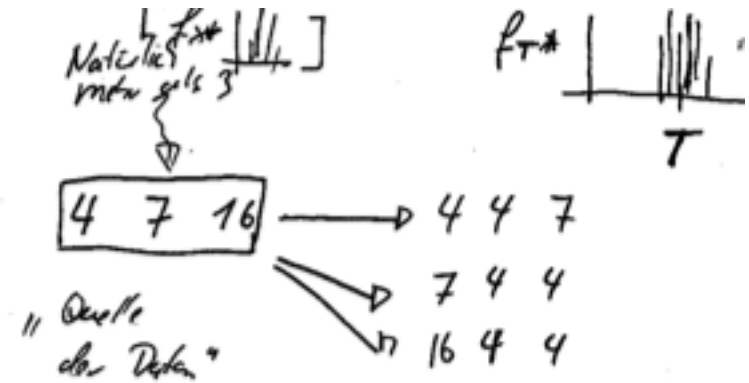 f_X*
Natürlich
mehr als 3
f_T*
T
4 7 16
4 4 7
7 4 4
16 4 4
"Quelle
der Daten"